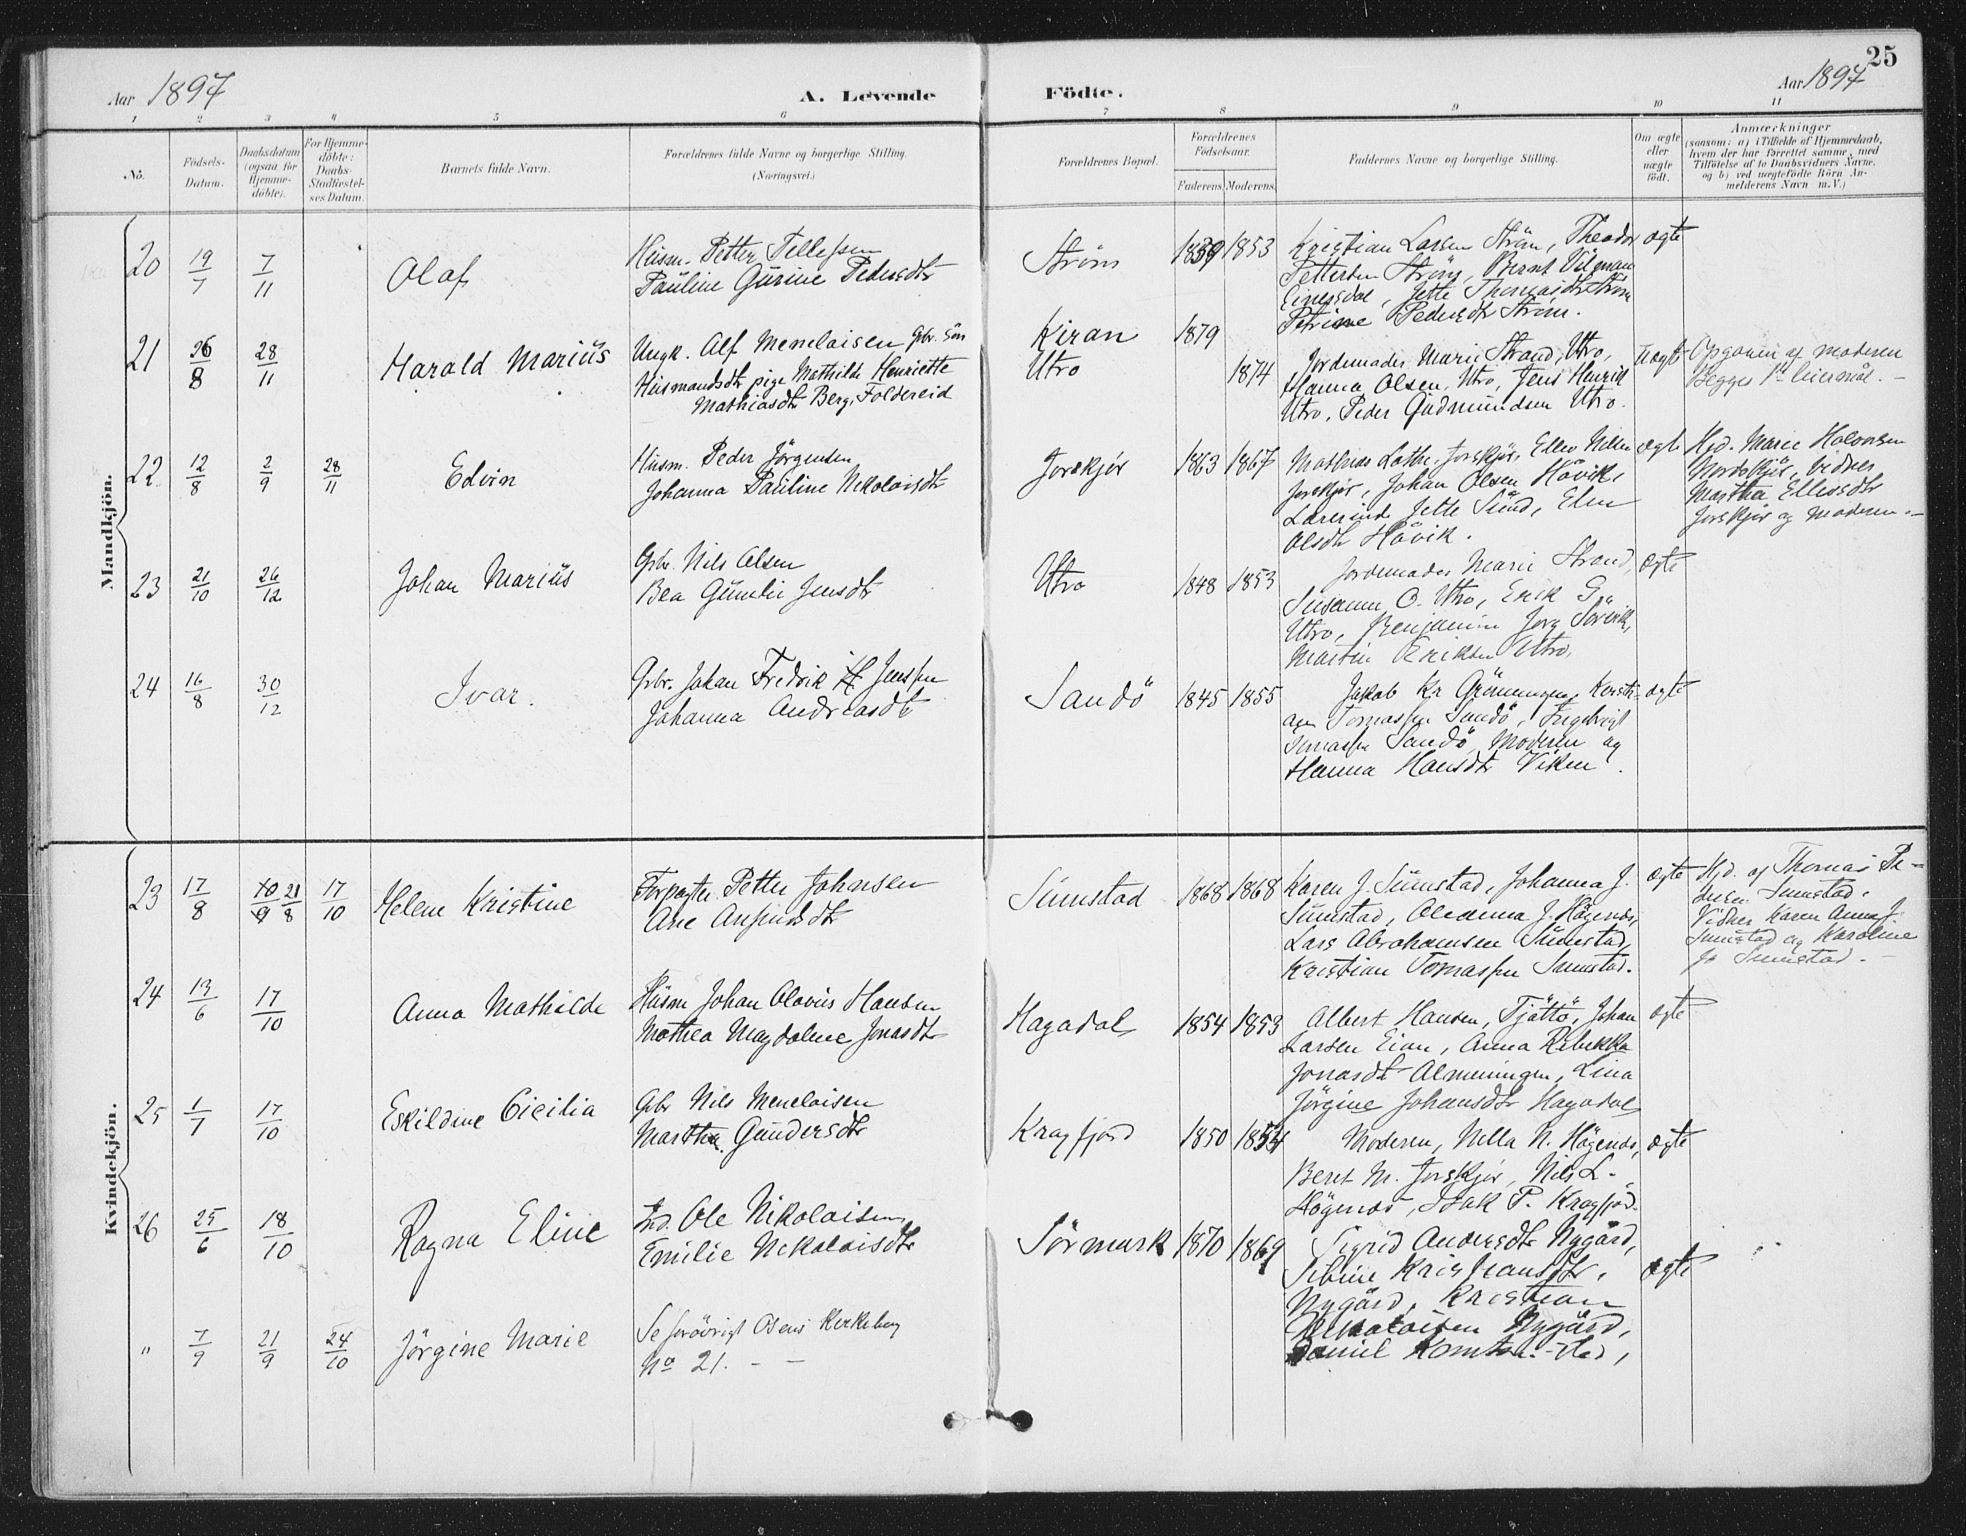 25
Aar 1897
A. Levende
Födte.
Aar 1897
1 2 3 4 5 6 7 8 9 10 11
No.
Födsels-
Datum.
Daabsdatum
(ogsaa for
Hjemme-
döbte).
For Hjemme-
döbte:
Daabs-
Stadfæstel-
ses Datum.
Barnets fulde Navn.
Forældrenes fulde Navne og borgerlige Stilling.
(Næringsvei.)
Forældrenes Bopæl.
Forældrenes
Födselsaar.
Faderens. Moderens.
Faddernes Navne og borgerlige Stilling.
Om ægte
eller
uægte
födt.
Anmærkninger
(saasom: a) i Tilfælde af Hjemmedaab,
hvem der har forrettet samme, med
Tilföielse af to Daabsvidners Navne.
og b) ved uægtefödte Börn An-
melderens Navn m.V.)
Mandkjön.
20 19/7 7/11 Olaf
Husm. Petter Tellefsen
Pauline Gurine Pedersdtr
Ström 1839 1853
Kristian Larsen Ström, Theodor
Pettersen Ström, Bernt Vilman
Einersdal, Jette Thomasdtr Ström
Petrine Pedersdtr Ström.
ægte
21 26/8 28/11 Harald Marius
Ungk. Alf Menelaisen Gbr. Sön
Husmandsdtr pige Mathilde Henriette
Mathiasdtr Berg, Foldereid
Kiran 1879
Utro 1874
Jordemoder Marie Strand, Utro,
Hanna Olsen, Utro, Jens Henrik
Utro, Peder Gudmundsen Utro.
uægte
Opgaven af moderen
Begges 1ste leiermål. -
22 12/8 2/9 28/11 Edvin
Husm. Peder Jörgensen
Johanna Pauline Nikolaisdtr
Jorskjör 1863 1867
Mathias Lothe, Jorskjör, Ellev Nilsen
Jorskjör, Johan Olsen Hövik,
Lærerinde Jette Sund, Elen
Olsdtr Hövik.
ægte
Hjd. Marie Halvorsen
Nordskjör, vidner
Martha Ellevsdtr
Jorskjör og Moderen. -
23 21/10 26/12 Johan Marius
Gbr. Nils Olsen
Bea Gunelie Jensdtr
Utro 1848 1853
Jordemoder Marie Strand,
Susanna O. Utro, Erik G.
Utro, Benjamin Jorg Sörvik,
Martin Eriksen Utro.
ægte
24 16/8 30/12 Ivar.
Gbr. Johan Fredrik Jenssen
Johanna Andreasdtr
Sandö 1845 1855
Jakob Kr Grönningen, Kristi-
an Tomassen Sandö, Ingebrigt
Tomassen Sandö, Moderen og
Hanna Hansdtr Viken.
ægte
Kvindekjön.
23 17/8 10/9 21/8 17/10 Helene Kristine
Forpagter Petter Johnsen
Ane Arnsundsdtr
Sumstad 1868 1868
Karen J. Sumstad, Johanna J.
Sumstad, Oleanna J. Högenæs,
Lars Abrahamsen Sumstad,
Kristian Tomassen Sumstad.
ægte
Hjd. af Thomas Pe-
dersen Sumstad.
Vidner Karen Anna J.
Sumstad og Karoline
J. Sumstad. -
24 13/6 17/10 Anna Mathilde
Husm Johan Olavus Hansen
Mathea Magdalene Jonasdtr
Hagadal 1854 1853
Albert Hansen, Tjöttö, Johan
Larsen Eian, Anna Rebekka
Jonasdtr Almenningen, Lina
Jörgine Johansdtr Hagadal
ægte
25 1/7 17/10 Eskildine Cicilia
Gbr Nils Menelaisen
Martha Gundersdtr
Kragfjord 1850 1854
Moderen, Nella N. Högenæs,
Beret M. Jorskjör, Nils L.
Högenæs, Isak P. Kragfjord.
ægte
26 25/6 18/10 Ragna Eline
Ind. Ole Nikolaisen
Emilie Nikolaisdtr
Sörmark 1870 1869
Sigrid Andersdtr Nygård,
Sibine Kristiansdtr,
Nygård, Kristian
Nikolaisen Nygård,
Daniel
ægte
" 7/9 21/9 24/10 Jörgine Marie
Se forövrigt Osens Kirkebog
No 21. - -